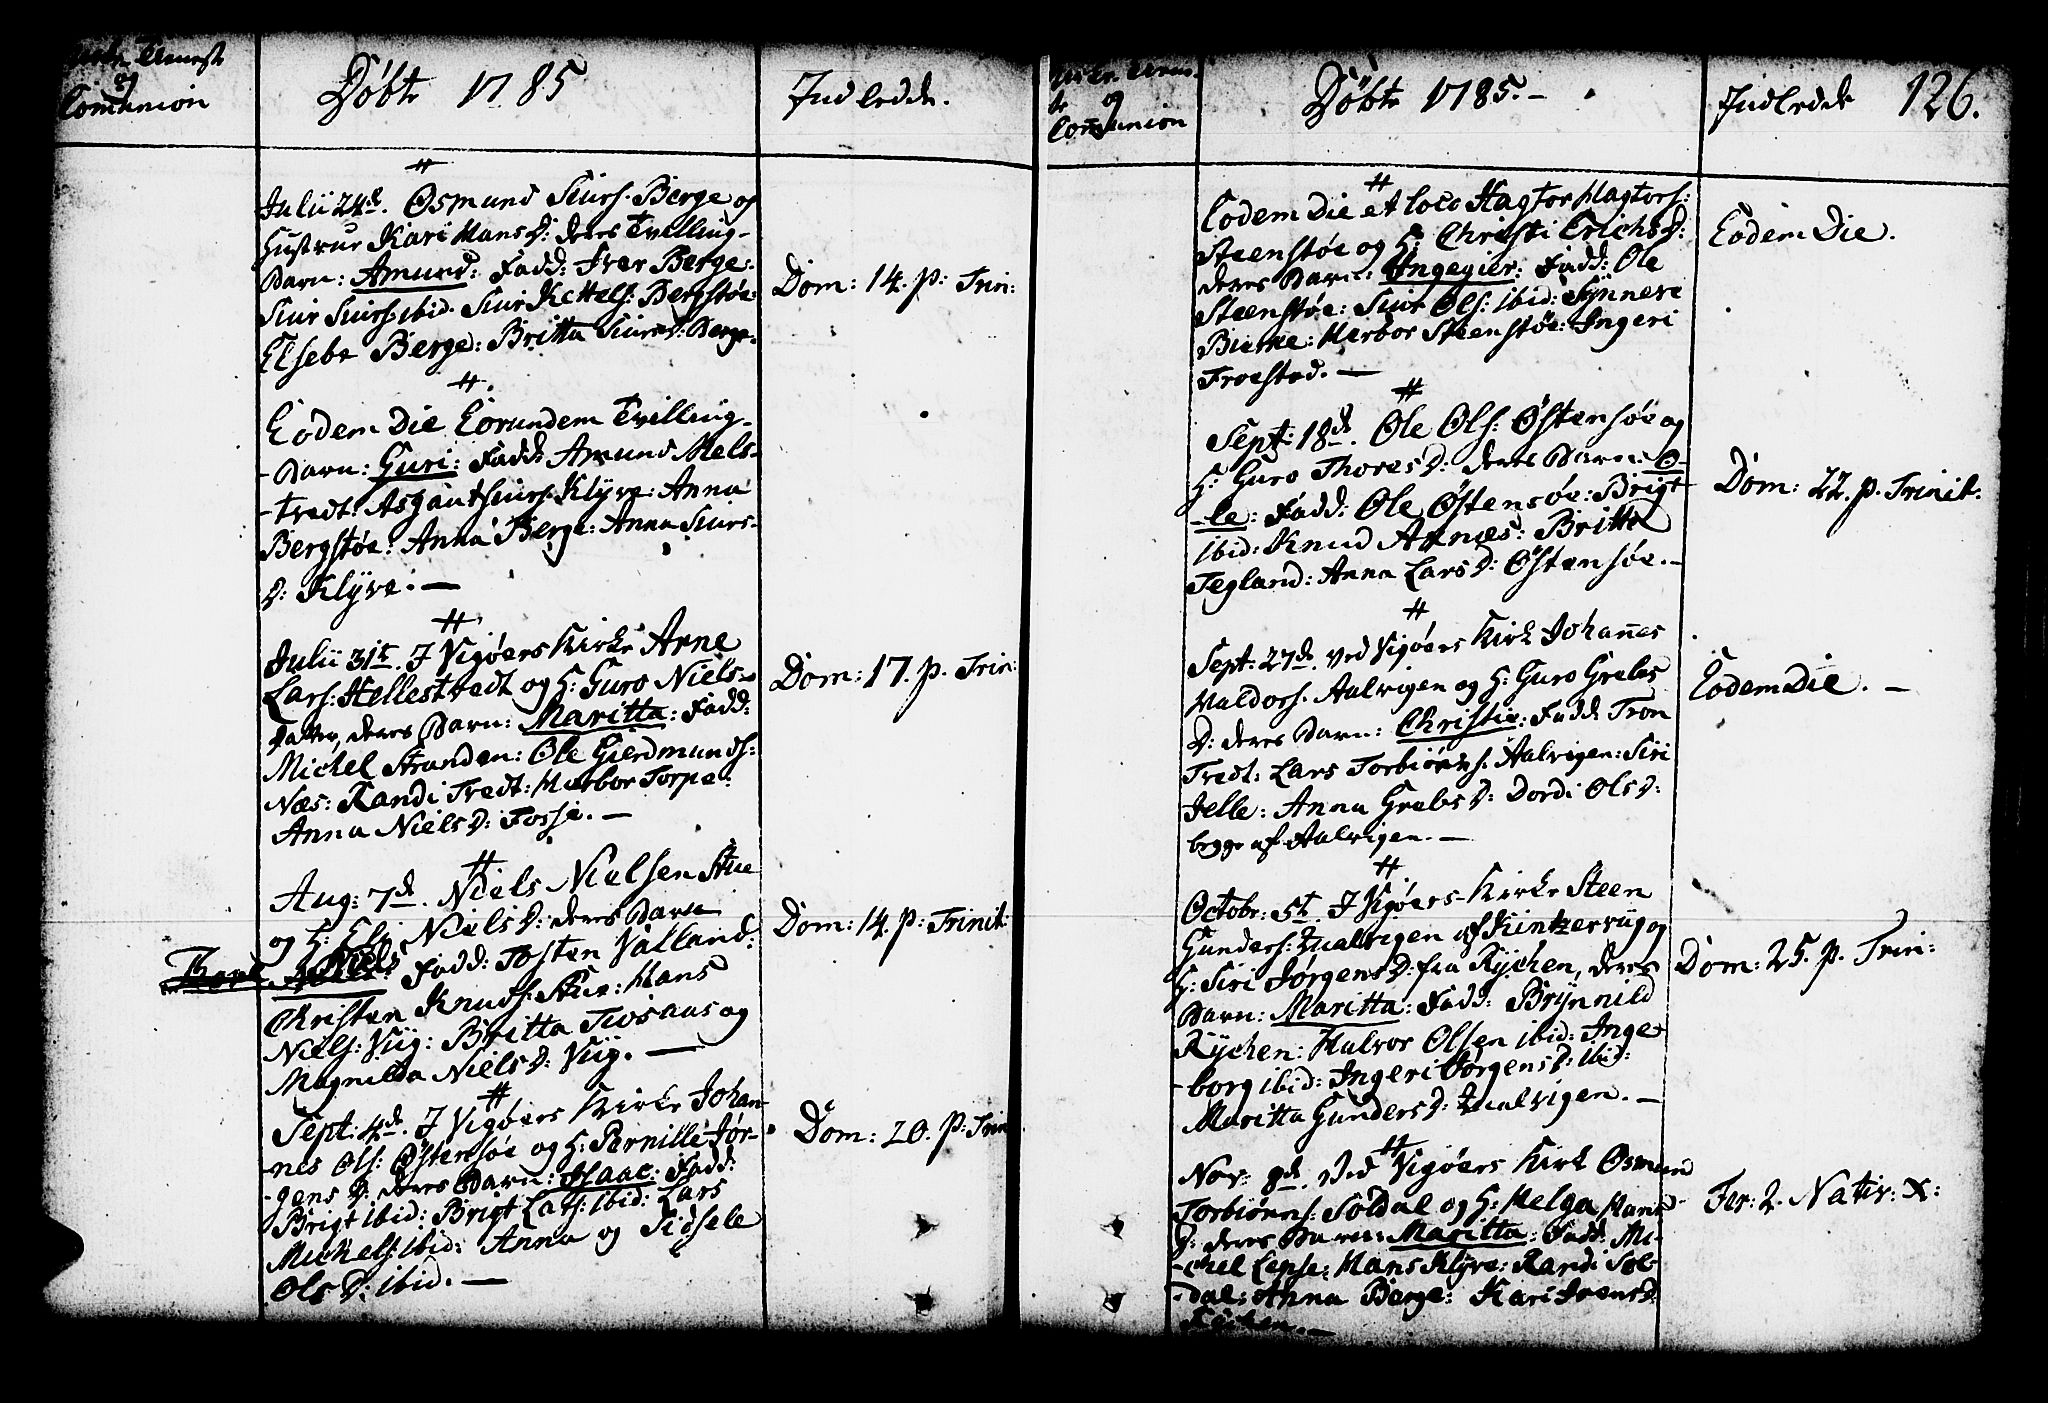 og
Comunion
Døbte 1785
Indledde.
#
Julii 24de. Osmund Siurs: Berge og
Hustrue Kari Hans D: deres Tvilling-
Barn: Amund: Fadd: Iver Berge:
Siur Siurs: ibid: Siur Kettels: Bergstøe:
Elsebe Berge: Britta Siurs D: Berge.
Dom: 14. p: Trin:
#
Eodem Die Eorundem Tvilling-
-Barn: Guri: Fadd: Amund Mels-
-tredt: Asgaut Siurs: Klyve: Anna
Bergstøe: Anna Berge: Anna Siurs-
D: Klÿve. —
#
Julii 31te. I Vigøers Kirke Arne
Lars: Hellestredt og H: Guro Niels-
Datter, deres Barn: Maritta: Fadd:
Michel Stranden: Ole Gierdmunds:
Næs: Randi Tredt: Marbor Torpe:
Anna Niels D: Fosse. —
Dom: 17. p. Trin:
#
Aug: 7de. Niels Nielsen Stue
og H: Eli Niels D: deres Barn
Niels Fadd: Tosten Valland:
Christen Knuds: Stue: Hans
Niels: Viig: Britta Tvosaas og
Magnilda Niels D: Viig. —
Dom: 14. p: Trinit:
#
Sept: 4de. I Vigøers Kirke Johan-
-nes Ols: Østensøe og H: Pernille Jør-
-gens D: deres Barn: Isaac: Fadd:
Brigt ibid: Brigt Lars: ibid: Lars
Mickels: ibid: Anna og Sidsele
Ols D: ibid. —
Dom: 20. P: Trin
og
Comunion
Døbte 1785. —
Indledde 126.
#
Eodem Die et loco Hagtor Hagtors:
Steenstøe og H: Christi Erichs D:
deres Barn: Ingegier: Fadd: Ole
Steenstøe: Siur Ols: ibid: Synneve
Bierke: Marbor Steenstøe: Ingeri
Froestad. —
Eodem Die.
#
Sept: 18de. Ole Ols: Østensøe og
H: Guro Thores D: deres Barn: O-
-le: Fadd: Ole Østensøe: Brigt
ibid: Knud Aknæs: Britta
Tegland: Anna Lars D: Østensøe. —
Dom: 22. p. Trinit:
#
Sept: 27de. ved Vigøers Kirk Johannes
Valdors: Aalvigen og H: Guro Grebs
D: deres Barn: Christie: Fadd: Tron
Tredt: Lars Torbiørns: Aalvigen: Siri
Jelle: Anna Grebs D: Dordi Ols D:
begge af Aalvigen. —
Eodem Die. —
#
Octobr: 5te. I Vigøers Kirke Steen
Gunders: Aalvigen af Kintzervug og
H: Siri Jørgens D: fra Rÿchen, deres
Barn: Maritta: Fadd: Brÿnnild
Rÿchen: Halvor Olsen ibid: Inge-
-borg ibid: Ingeri Jørgens D: ibid:
Maritta Gunders D: Aalvigen. —
Dom: 25. p. Trin:
#
Nov: 8de. Ved Vigøers Kirk Osmun
Torbiørns: Soldal og H: Helga Hans
D: deres Barn: Maritta: Fadd: Mi-
-chel Lepse: Hans Klÿve: Randi Sol-
-dal: Anna Berge: Kari Ivers D:
Fer: 2. Nativ: X: